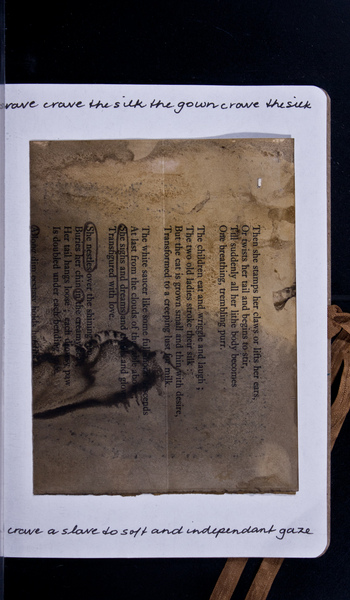 crave crave the silk the gown crave the silk
Then she stamps her claws or lifts her ears,
Or twists her tail and begins to stir,
Till suddenly all her lithe body becomes
One breathing, trembling purr.
The children eat and wriggle and laugh;
The two old ladies stroke their silk:
But the cat is grown small and thin with desire,
Transformed to a creeping lust for milk.
The white saucer like some full moon descends
At last from the clouds of the table above;
She sighs and dreams and thrills and glows,
Transfigured with love.
She nestles over the shining rim,
Buries her chin in the creamy sea;
Her tail hangs loose; each drowsy paw
Is doubled under each bending knee.
crave a slave to soft and independant gaze